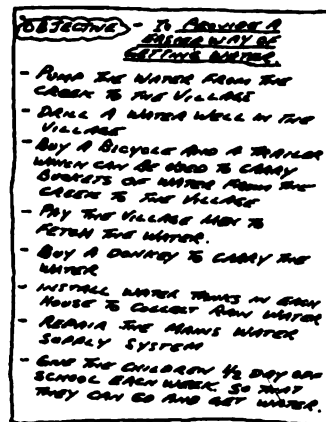 OBJECTIVE - TO PROVIDE A
EASIER WAY OF
GETTING WATER.
- PUMP THE WATER FROM THE
CREEK TO THE VILLAGE
- DRILL A WATER WELL IN THE
VILLAGE
- BUY A BICYCLE AND A TRAILER
WHICH CAN BE USED TO CARRY
BUCKETS OF WATER FROM THE
CREEK TO THE VILLAGE
- PAY THE VILLAGE MEN TO
FETCH THE WATER.
- BUY A DONKEY TO CARRY THE
WATER
- INSTALL WATER TANKS IN EACH
HOUSE TO COLLECT RAIN WATER
- REPAIR THE MAINS WATER
SUPPLY SYSTEM
- GIVE THE CHILDREN 1/2 DAY OFF
SCHOOL EACH WEEK, SO THAT
THEY CAN GO AND GET WATER.